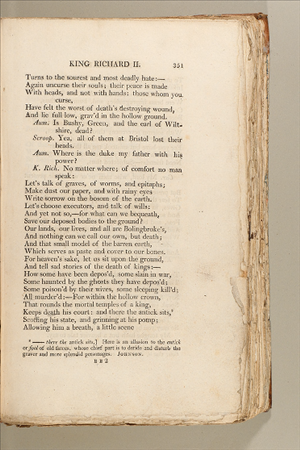 KING RICHARD II. 351
Turns to the sourest and most deadly hate:—
Again uncurse their souls; their peace is made
With heads, and not with hands: those whom you
curse,
Have felt the worst of death's destroying wound,
And lie full low, grav'd in the hollow ground.
Aum. Is Bushy, Green, and the earl of Wilt-
shire, dead?
Scroop. Yea, all of them at Bristol lost their
heads.
Aum. Where is the duke my father with his
power?
K. Rich. No matter where; of comfort no man
speak:
Let's talk of graves, of worms, and epitaphs;
Make dust our paper, and with rainy eyes
Write sorrow on the bosom of the earth.
Let's choose executors, and talk of wills:
And yet not so,—for what can we bequeath,
Save our deposed bodies to the ground?
Our lands, our lives, and all are Bolingbroke's,
And nothing can we call our own, but death;
And that small model of the barren earth,
Which serves as paste and cover to our bones.
For heaven's sake, let us sit upon the ground,
And tell sad stories of the death of kings:—
How some have been depos'd, some slain in war,
Some haunted by the ghosts they have depos'd;
Some poison'd by their wives, some sleeping kill'd;
All murder'd:—For within the hollow crown,
That rounds the mortal temples of a king,
Keeps death his court: and there the antick sits,⁸
Scoffing his state, and grinning at his pomp;
Allowing him a breath, a little scene
⁸ —— there the antick sits,] Here is an allusion to the antick
or fool of old farces, whose chief part is to deride and disturb the
graver and more splendid personages. JOHNSON.
BB2